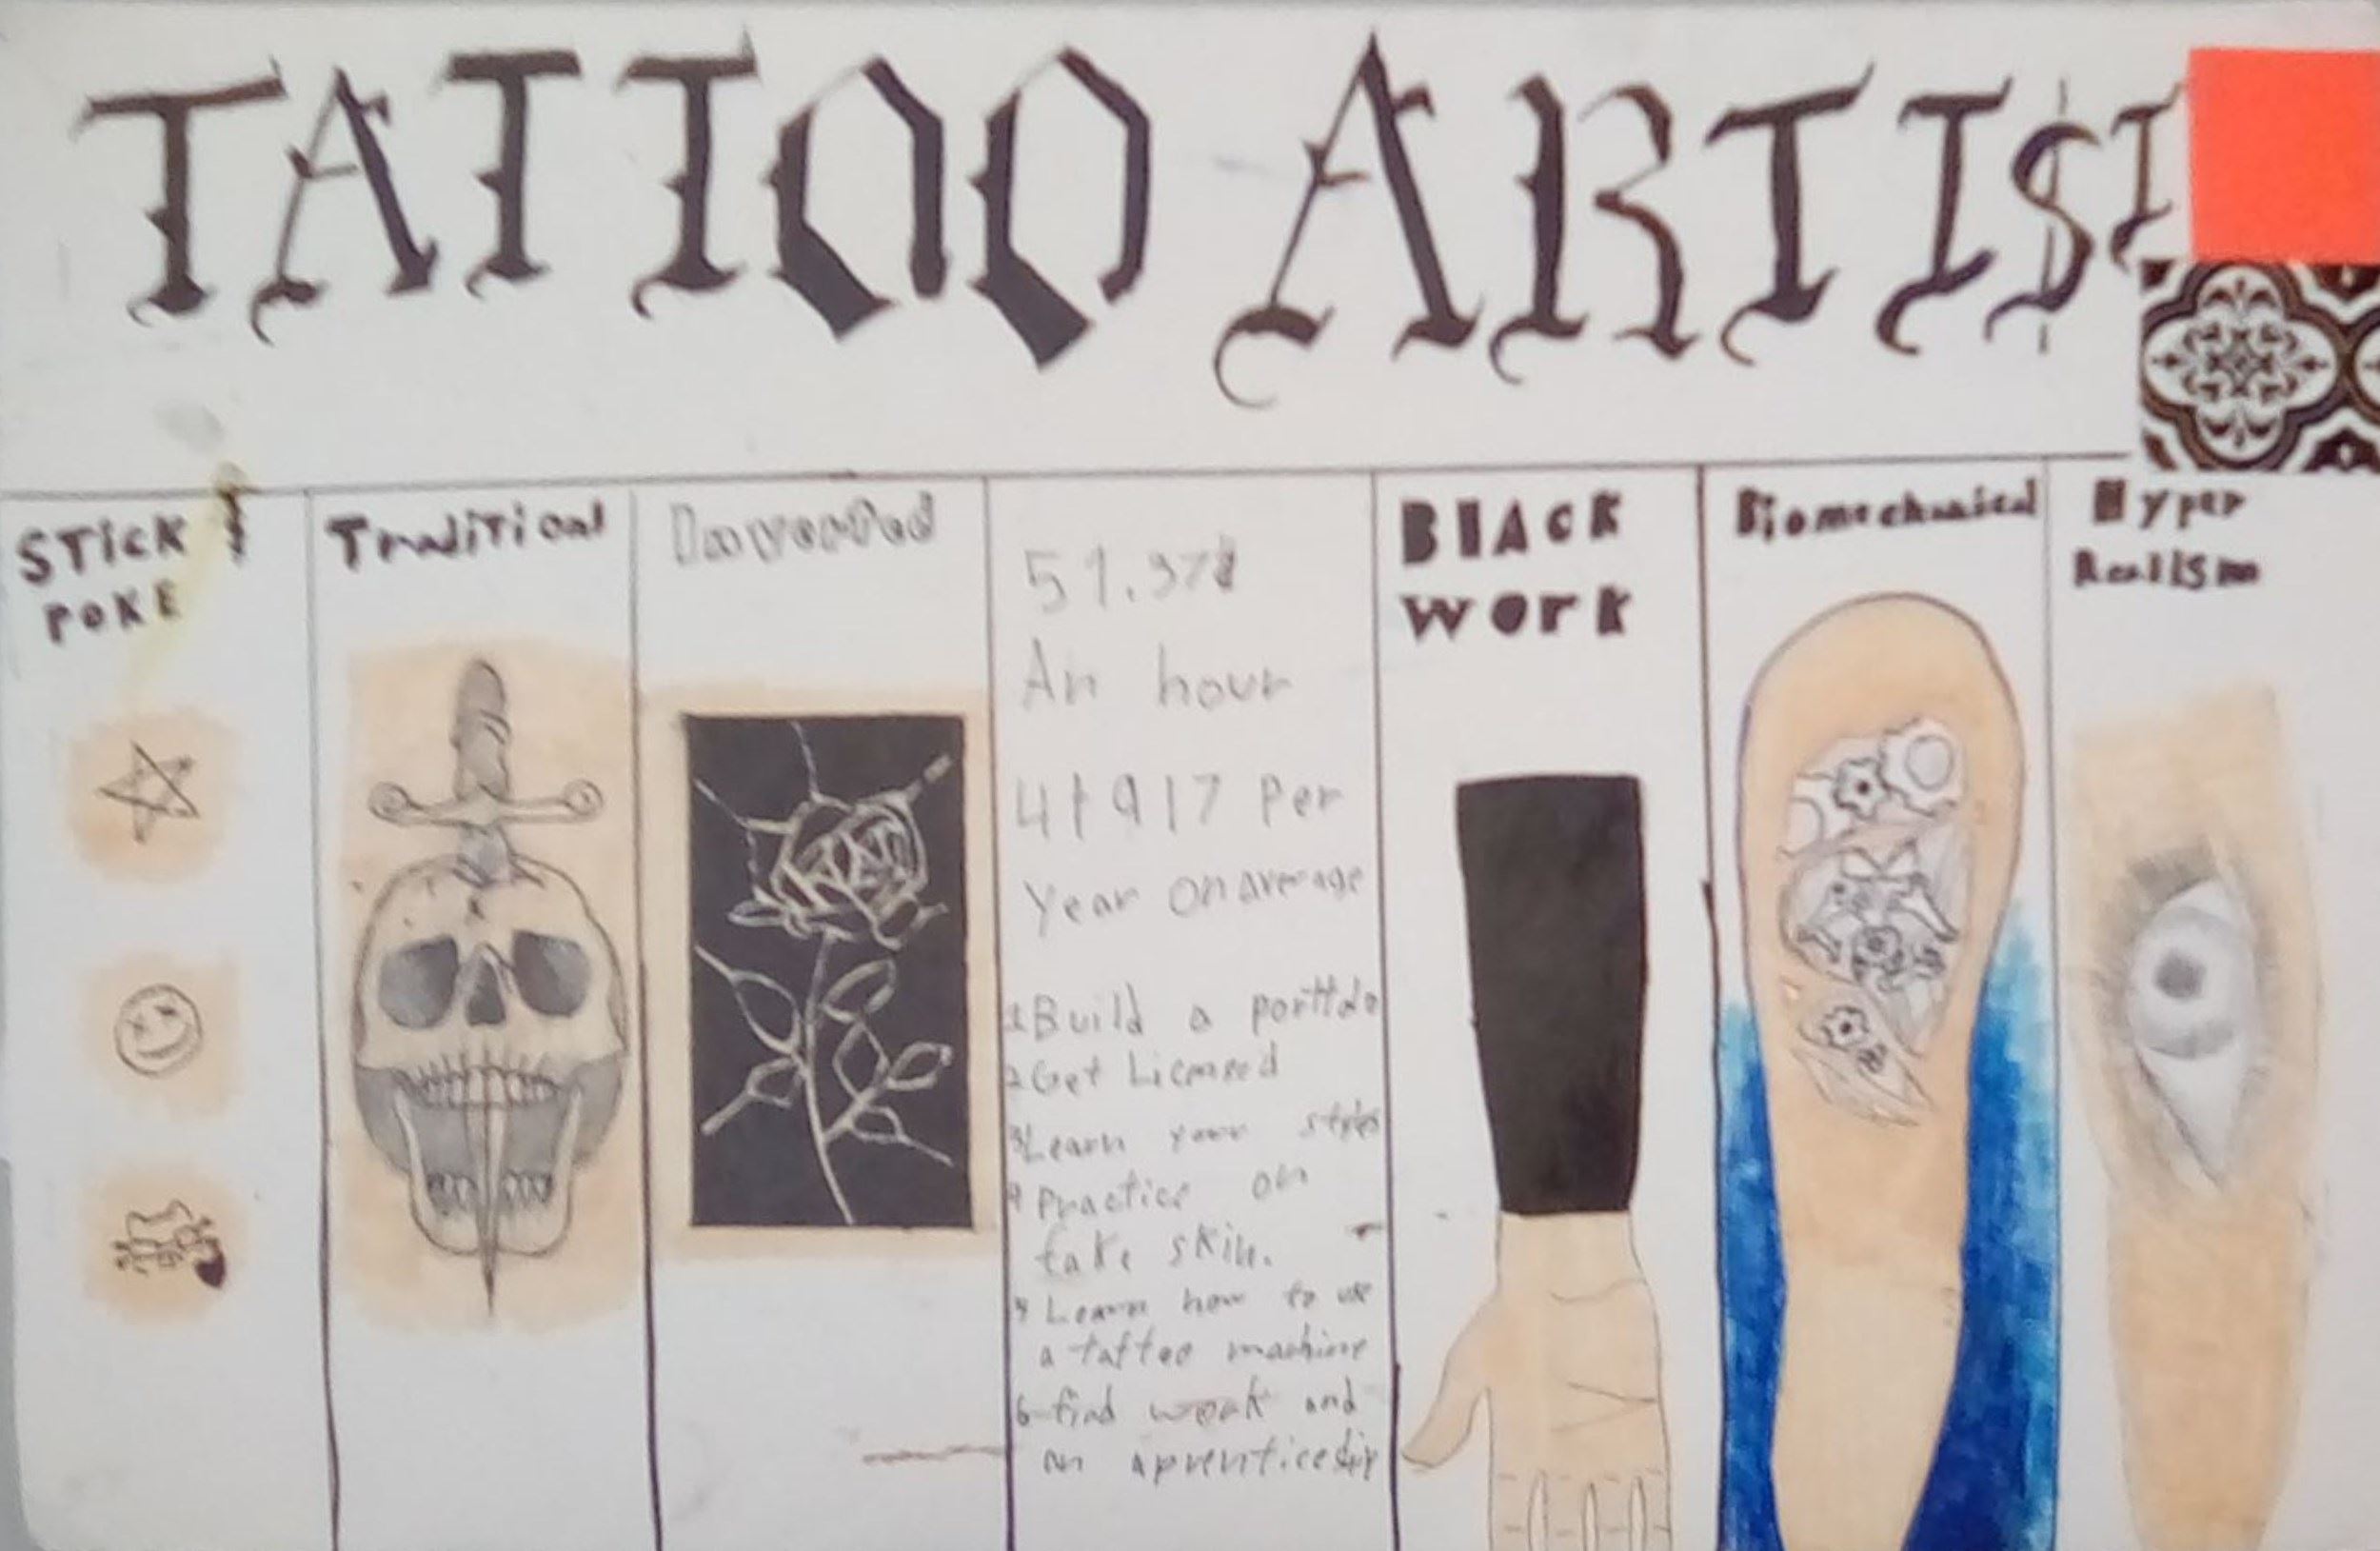 TATTOO ARTI$T
STICK &
POKE
Traditional
Inverted
An hour
41917 Per
Year on average
1 Build a portfolo
2 Get Licensed
3 Learn your styles
4 Practice on
fake skin.
5 Learn how to use
a tattoo machine
6 find work and
an aprenticeship
BlACK
work
Biomechanical
Hyper
Realism